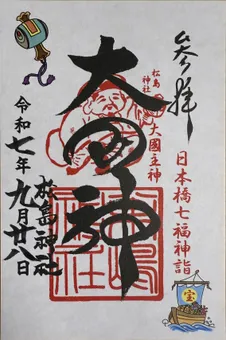 奉拝
日本橋七福神詣
松島神社
大國主神
大国神
松島神社
令和七年九月廿八日
宝